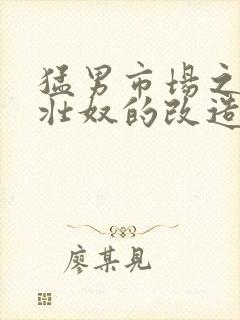 猛男市場之
壯奴的改造
廖某見